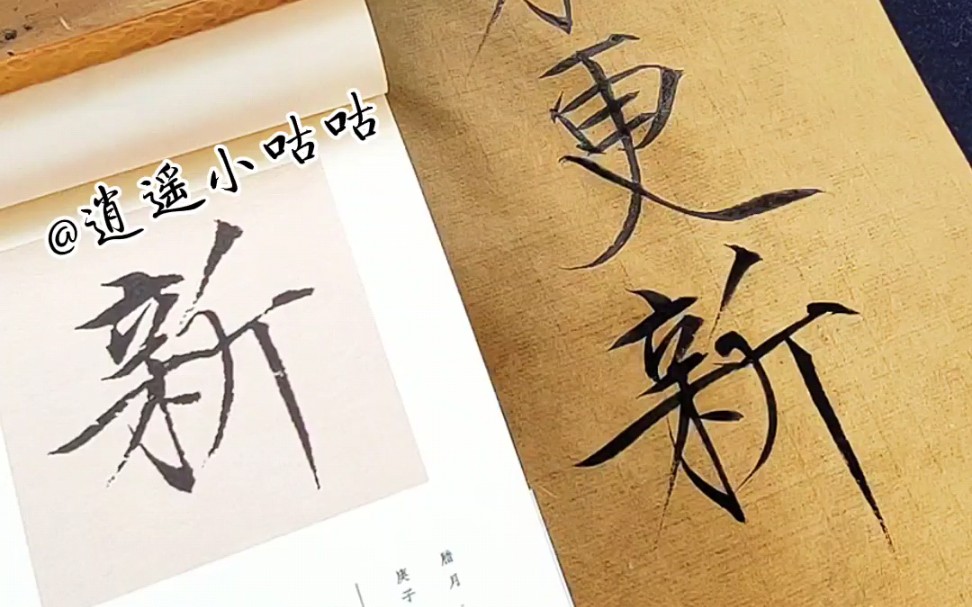 @逍遥小咕咕
新
更
新
腊月
庚子